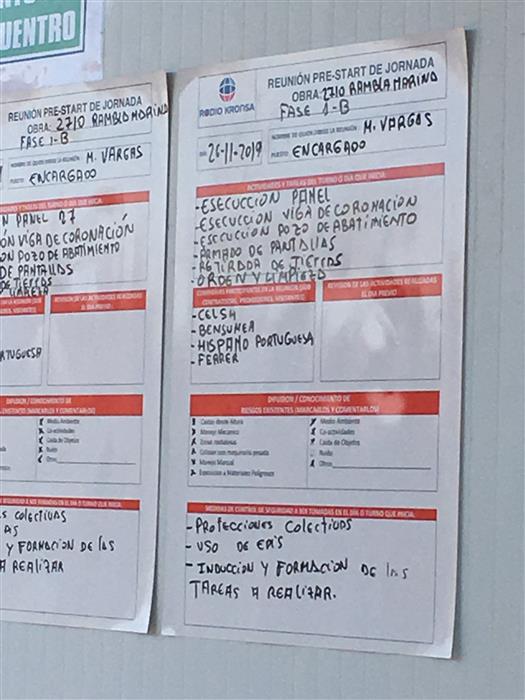 CUENTRO
REUNIÓN PRE-START DE JORNADA
OBRA: 2710 RAMBLA MARINO
FASE 1-B
M. VARGAS
ENCARGADO
PANEL 27
VIGA DE CORONACIÓN
POZO DE ABATIMIENTO
DE PANTALLAS
DE TIERRAS
LIMPIEZA
REVISIÓN DE LAS ACTIVIDADES REALIZADAS
EL DÍA PREVIO
DIFUSIÓN / CONOCIMIENTO DE
EXISTENTES (MARCARLOS Y COMENTARLOS)
Medio Ambiente
Co-actividades
Caída de Objetos
Ruido
Otros
COLECTIVAS
Y FORMACION DE LAS
A REALIZAR
RODIO KRONSA
REUNIÓN PRE-START DE JORNADA
OBRA: 2710 RAMBLA MARINO
FASE 1-B
DÍA: 26-11-2019
NOMBRE DE QUIEN DIRIGE LA REUNIÓN: M. VARGAS
PUESTO: ENCARGADO
ACTIVIDADES Y TAREAS DEL TURNO O DÍA QUE INICIA
- ESECUCCIÓN PANEL
- ESECUCCIÓN VIGA DE CORONACIÓN
- ESECUCCIÓN POZO DE ABATIMIENTO
- ARMADO DE PANTALLAS
- RETIRADA DE TIERRAS
- ORDEN Y LIMPIEZA
REVISIÓN DE LAS ACTIVIDADES REALIZADAS
EL DÍA PREVIO
- CELSA
- BENSUNEA
- HISPANO PORTUGUESA
- FERRER
DIFUSIÓN / CONOCIMIENTO DE
RIESGOS EXISTENTES (MARCARLOS Y COMENTARLOS)
Caídas desde Altura
Manejo Mecánico
Zonas
Colisión con maquinaria pesada
Manejo Manual
Exposición a Materiales Peligrosos
Medio Ambiente
Co-actividades
Caída de Objetos
Ruido
Otros
MEDIDAS DE CONTROL DE SEGURIDAD A SER TOMADAS EN EL DÍA O TURNO QUE INICIA
- PROTECCIONES COLECTIVAS
- USO DE EPIS
- INDUCCION Y FORMACION DE LAS
TAREAS A REALIZAR.